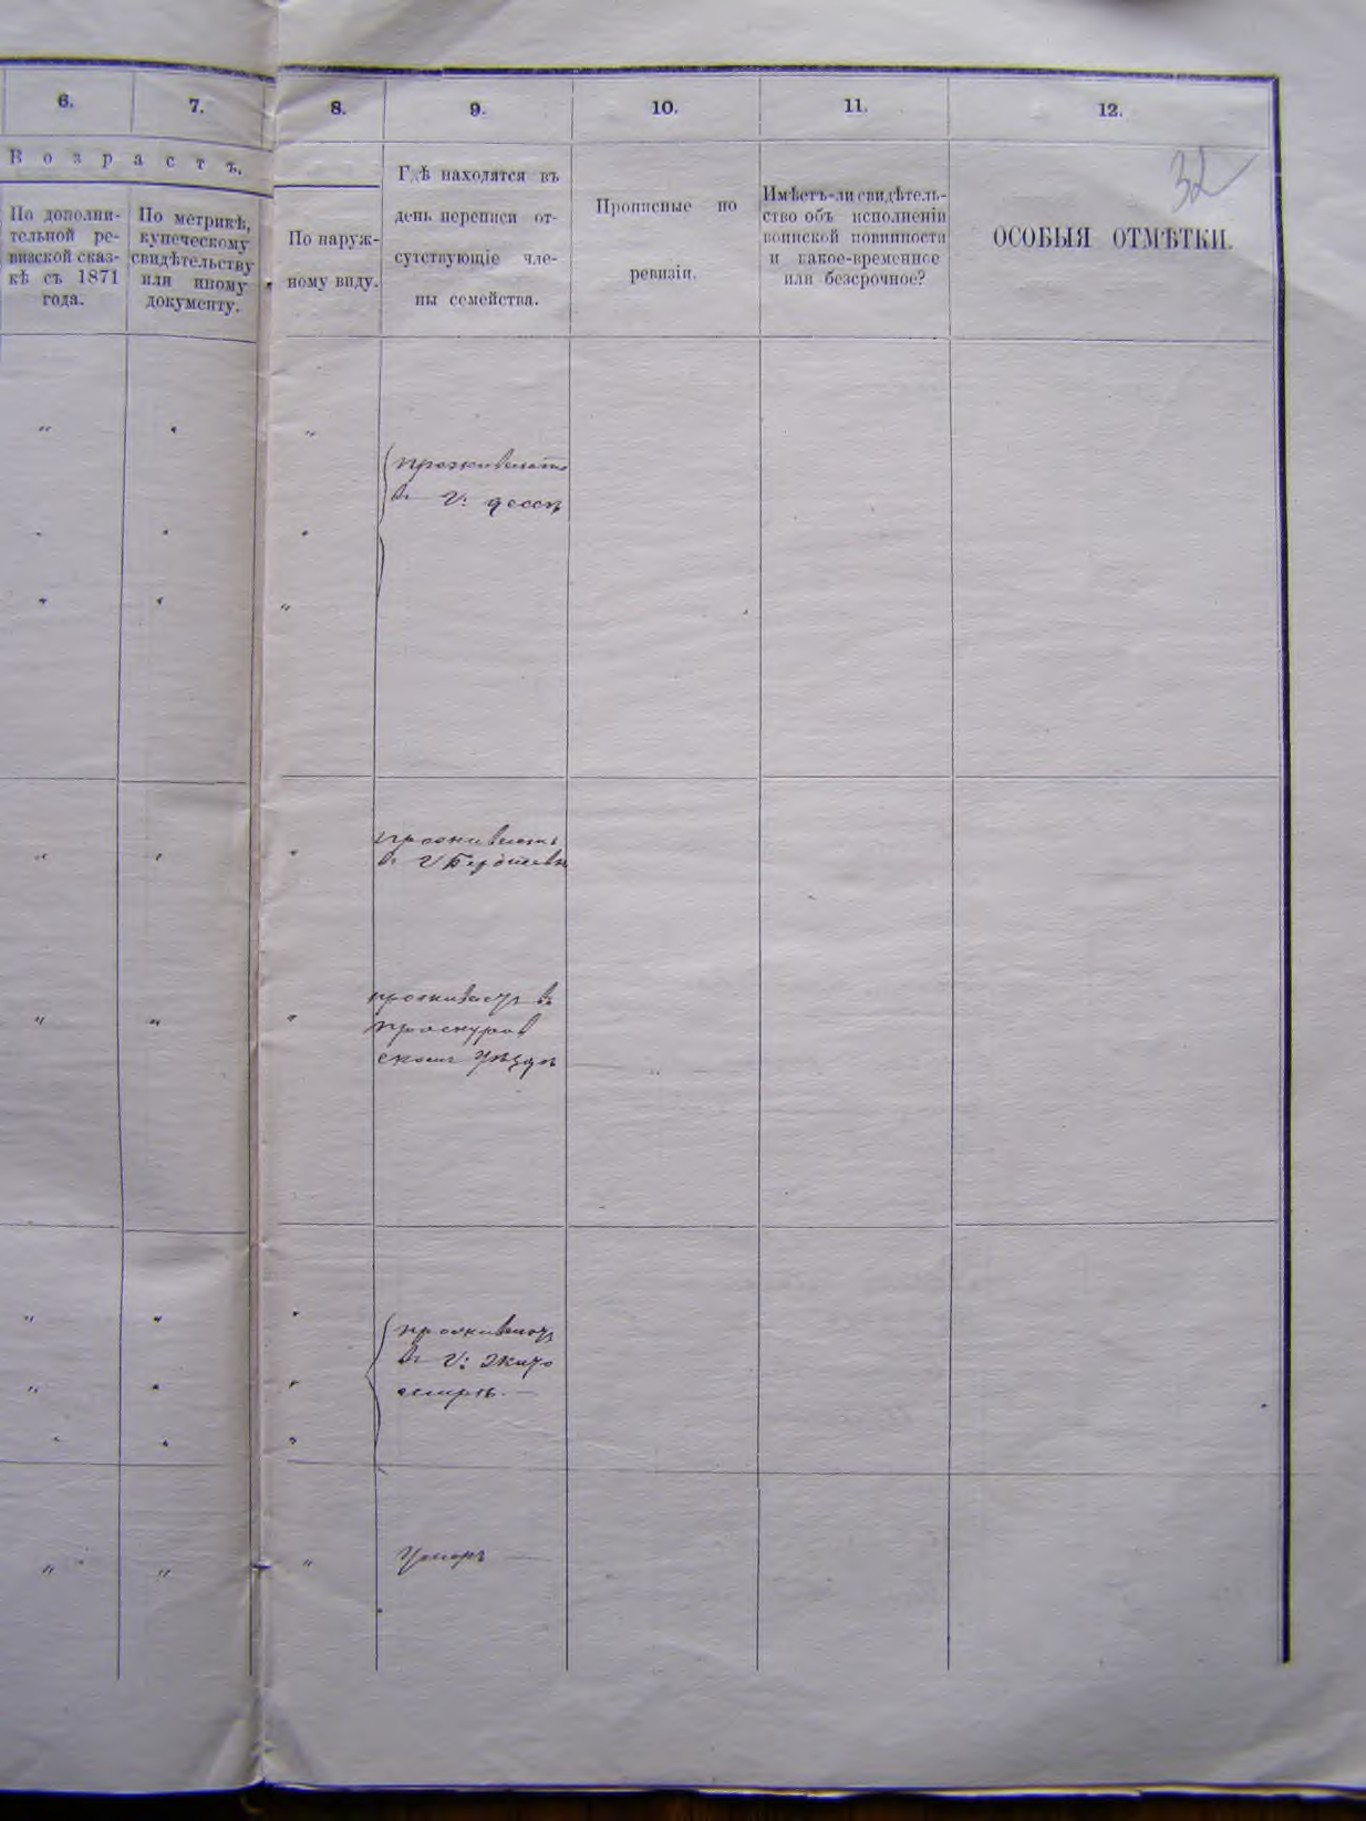 6.
7.
8.
9.
10.
11.
12.
32
Возрастъ.
По дополни-
тельной ре-
визской сказ-
кѣ съ 1871
года.
По метрикѣ,
купеческому
свидѣтельству
или иному
документу.
По наруж-
ному виду.
Гдѣ находятся въ
день переписи от-
сутствующіе чле-
ны семейства.
Прописные по
ревизіи.
Имѣетъ-ли свидѣтель-
ство объ исполненіи
воинской повинности
и какое-временное
или безсрочное?
ОСОБЫЯ ОТМѢТКИ.
" " "
проживаютъ
въ г: одессѣ
" " "
" " "
проживаетъ
въ г Бердичевѣ
" " "
проживаетъ въ
проскуров
скомъ уѣздѣ
" " "
проживаютъ
въ г: Жито
мирѣ. —
" " "
" " "
" " "
умеръ —
" " "